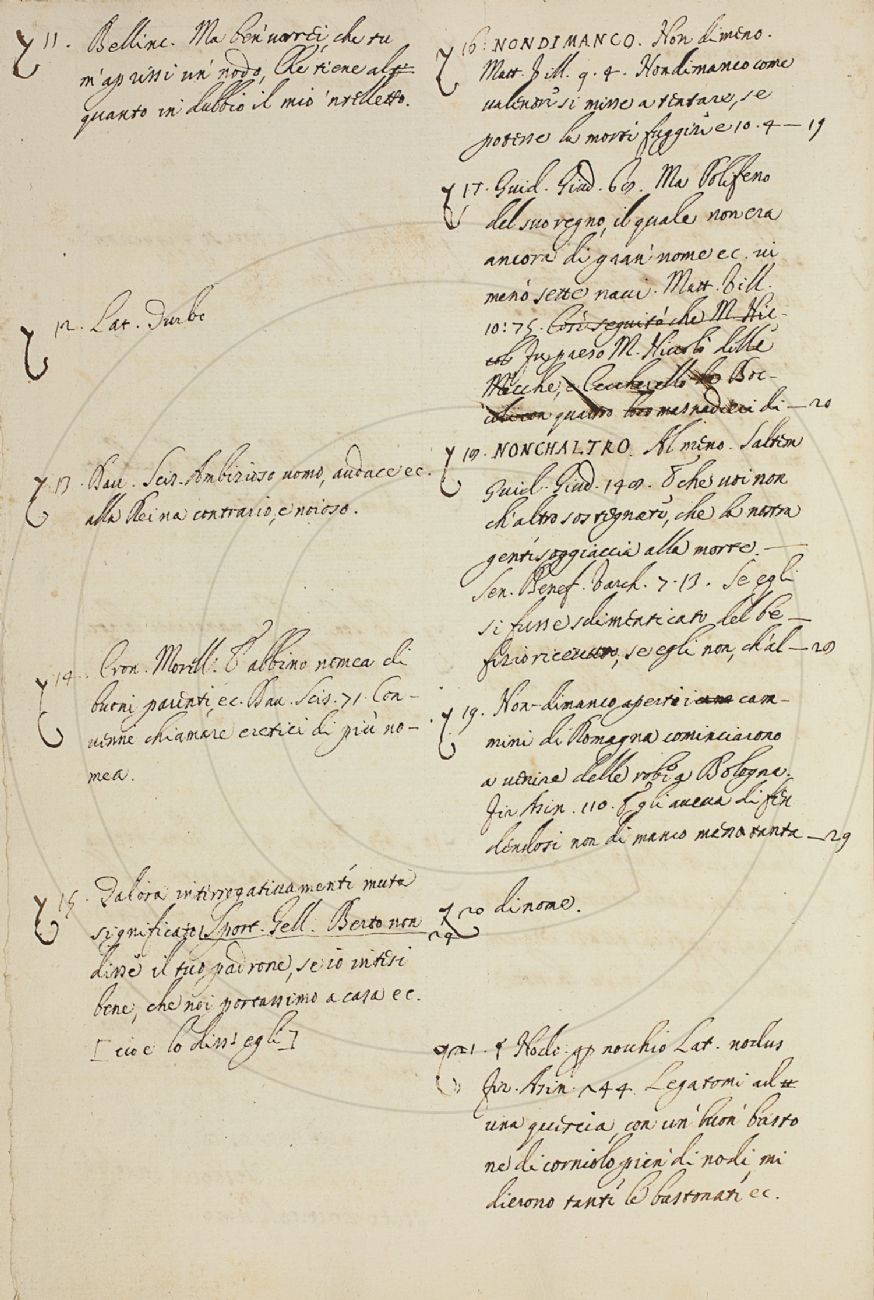 11. Bellinc. Ma ben vorrei che tu
m'aprissi un' nodo, Che tiene al=
quanto in dubbio il mio 'ntelletto.
12. Lat. Turbo
13. Dav. Scis. Ambizioso uomo, audace ec.
alla Reina contrario, e noioso.
14. Cron. Morell. Ebbino nomea di
buoni parenti, ec. Dav. Scis. 71. Con-
venne chiamare eretici di più no-
mea.
15. Talora interrogativamente muta
significato. Sport. Gell. Berto non
disse il tuo padrone, se io intesi
bene, che noi portassimo a casa ec.
[cioè lo diss' egli]
16. NONDIMANCO. Non dimeno.
Matt. Vill. 9. 4. Nondimanco come
valente si misse a tentare, se
potesse la morte fuggire e 10. 4—19
17. Guid. Giud. 69. Ma Polifeno
del suo regno, il quale non era
ancora di gran' nome ec. vi
menò sette navi. Matt. Vill.
10: 75. Così seguitò che M. Nic-
colò Fu preso M. Niccolò delle
Mecche, e Ceccherello Boc-
coli con quattro loro masnadieri di—20
18. NONCHALTRO. Almeno. Saltem
Guid. Giud. 148. E che voi non
ch'altro sostegnate, che la nostra
gente soggiaccia alla morte.—
Sen. Benef. Varch. 7. 13. Se egli
si fusse sdimenticato del be—
fizio ricevuto, se egli non, ch'al—28
19. Non-dimanco aperto i cam-
mini di Romagna cominciarono
a venire delle robe a Bologna.
Fir. Asin. 110. Egli aveva difen
dendosi non di manco menò tanta—29
20 di nome.
24
21. § Nodo. per nocchio Lat. nodus
Fir. Asin. 244. Legatomi ad=
una quercia, con un' buon' basto
ne di corniolo pien' di nodi, mi
dierono tante le bastonate ec.